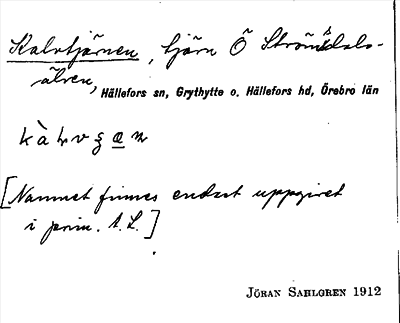 Kalvtjärnen, tjärn Ö Strömsdals-
älven,
Hällefors sn, Grythytte o. Hällefors hd, Örebro län
[Namnet finnes endast uppgivet
i prim. A.L.]
JÖRAN SAHLGREN 1912